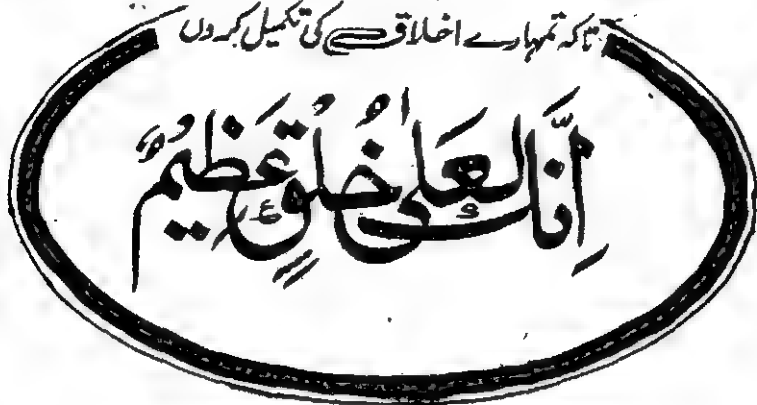 تاکہ تمہارے اخلاق کی تکمیل کر دوں
اِنَّكَ لَعَلٰى خُلُقٍ عَظِيْمٍ